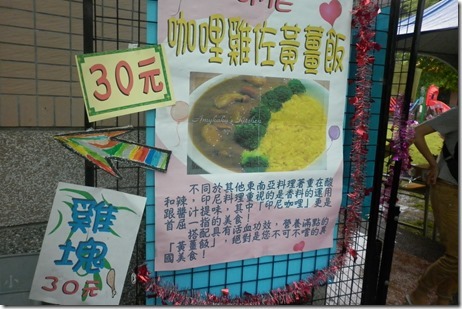 咖哩雞佐黃薑飯
30元
Angkaka's Kitchen
不同於其他東南亞料理著重在酸
和辣，印尼料理重視的是香料的運用
跟醬汁提味，其中「印尼咖哩」更是
首屈一指的美食！
搭配具有活血功效，營養滿點的
「黃薑飯」，絕對是您不可不嚐的異
國美食！
雞塊
30元